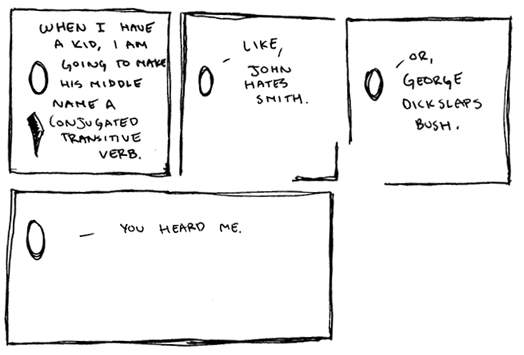 WHEN I HAVE
A KID, I AM
GOING TO MAKE
HIS MIDDLE
NAME A
CONJUGATED
TRANSITIVE
VERB.
LIKE,
JOHN
HATES
SMITH.
OR,
GEORGE
DICKSLAPS
BUSH.
YOU HEARD ME.